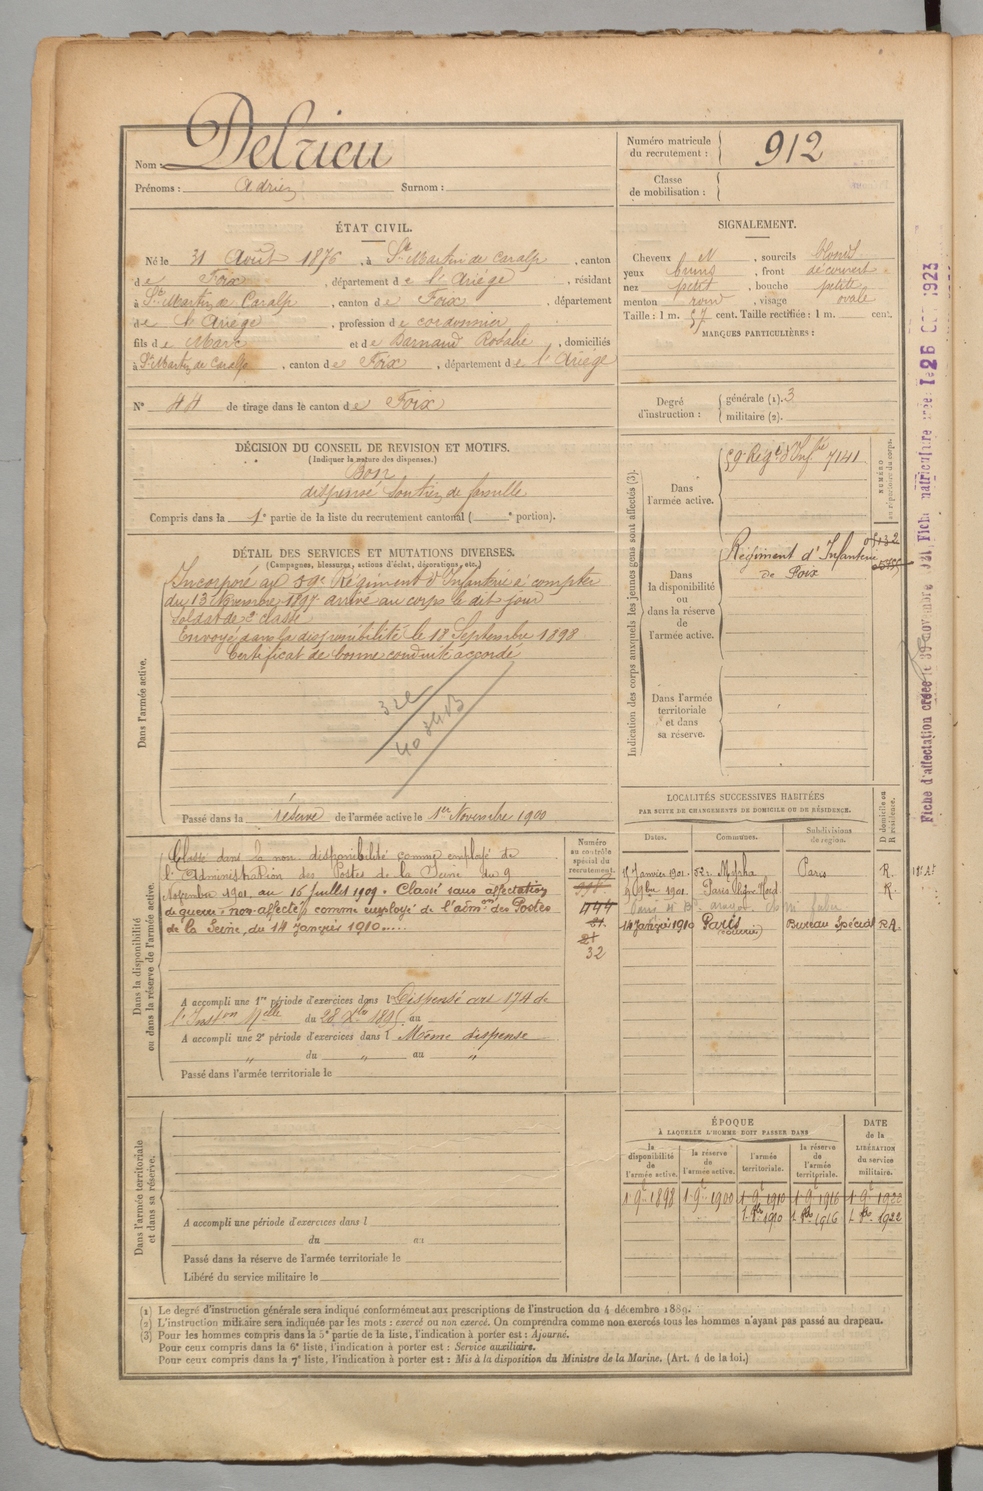 Nom : Delrieu
Prénoms : Adrien Surnom :
Numéro matricule du recrutement : 912
Classe de mobilisation :
ÉTAT CIVIL.
Né le 31 Août 1876, à St Martin de Caralp, canton
de Foix, département de l'Ariège, résidant
à St Martin de Caralp, canton de Foix, département
de l'Ariège, profession de cordonnier
fils de Marc et de Darnaud Rosalie, domiciliés
à St Martin de Caralp, canton de Foix, département de l'Ariège
N° 44 de tirage dans le canton de Foix
SIGNALEMENT.
Cheveux N, sourcils blonds
yeux bruns, front découvert
nez petit, bouche petite
menton rond, visage ovale
Taille : 1 m. 57 cent. Taille rectifiée : 1 m. cent.
MARQUES PARTICULIÈRES :
Degré d'instruction : générale (1). 3
militaire (2).
DÉCISION DU CONSEIL DE REVISION ET MOTIFS.
(Indiquer la nature des dispenses.)
Bon
dispensé soutien de famille
Compris dans la 1e partie de la liste du recrutement cantonal ( e portion).
DÉTAIL DES SERVICES ET MUTATIONS DIVERSES.
(Campagnes, blessures, actions d'éclat, décorations, etc.)
Dans l'armée active.
Incorporé au 59e Régiment d'Infanterie à compter
du 13 Novembre 1897 arrivé au corps le dit jour
Soldat de 2e classe
Envoyé dans la disponibilité le 18 Septembre 1898
Certificat de bonne conduite accordé
Passé dans la réserve de l'armée active le 1er Novembre 1900
Indication des corps auxquels les jeunes gens sont affectés (3).
NUMÉRO au répertoire du corps.
Dans l'armée active.
59e Régt d'Infie 7141
Dans la disponibilité ou dans la réserve de l'armée active.
Régiment d'Infanterie
de Foix
Dans l'armée territoriale et dans sa réserve.
LOCALITÉS SUCCESSIVES HABITÉES
PAR SUITE DE CHANGEMENTS DE DOMICILE OU DE RÉSIDENCE.
Dates. Communes. Subdivisions de région. D domicile ou R résidence.
Janvier 1901 Paris R.
9 9bre 1901 Paris R.
14 Janvier 1910 Paris Bureau Spécial RA
Dans la disponibilité ou dans la réserve de l'armée active.
Numéro au contrôle spécial du recrutement.
Classé dans la non disponibilité comme employé de
l'Administration des Postes de la Seine du 9
Novembre 1901 au 16 juillet 1909. Classé sans affectation
de guerre "non affecté" comme employé de l'admon des Postes
de la Seine, du 14 Janvier 1910.....
444
21
32
A accompli une 1re période d'exercices dans l Dispensé art 174 de
l'Inston Melle du 28 Xbre 1895 au
A accompli une 2e période d'exercices dans l Même dispense
" du " au "
Passé dans l'armée territoriale le
Dans l'armée territoriale et dans sa réserve.
A accompli une période d'exercices dans l
du au
Passé dans la réserve de l'armée territoriale le
Libéré du service militaire le
ÉPOQUE
À LAQUELLE L'HOMME DOIT PASSER DANS
la disponibilité de l'armée active. la réserve de l'armée active. l'armée territoriale. la réserve de l'armée territoriale.
DATE de la LIBÉRATION du service militaire.
1 9e 1898 1 9e 1900 1 9e 1910 1 9e 1916 1 9e 1922
1 8bre 1910 1 8bre 1916 1 8bre 1922
(1) Le degré d'instruction générale sera indiqué conformément aux prescriptions de l'instruction du 4 décembre 1889.
(2) L'instruction militaire sera indiquée par les mots : exercé ou non exercé. On comprendra comme non exercés tous les hommes n'ayant pas passé au drapeau.
(3) Pour les hommes compris dans la 5e partie de la liste, l'indication à porter est : Ajourné.
Pour ceux compris dans la 6e liste, l'indication à porter est : Service auxiliaire.
Pour ceux compris dans la 7e liste, l'indication à porter est : Mis à la disposition du Ministre de la Marine. (Art. 4 de la loi.)